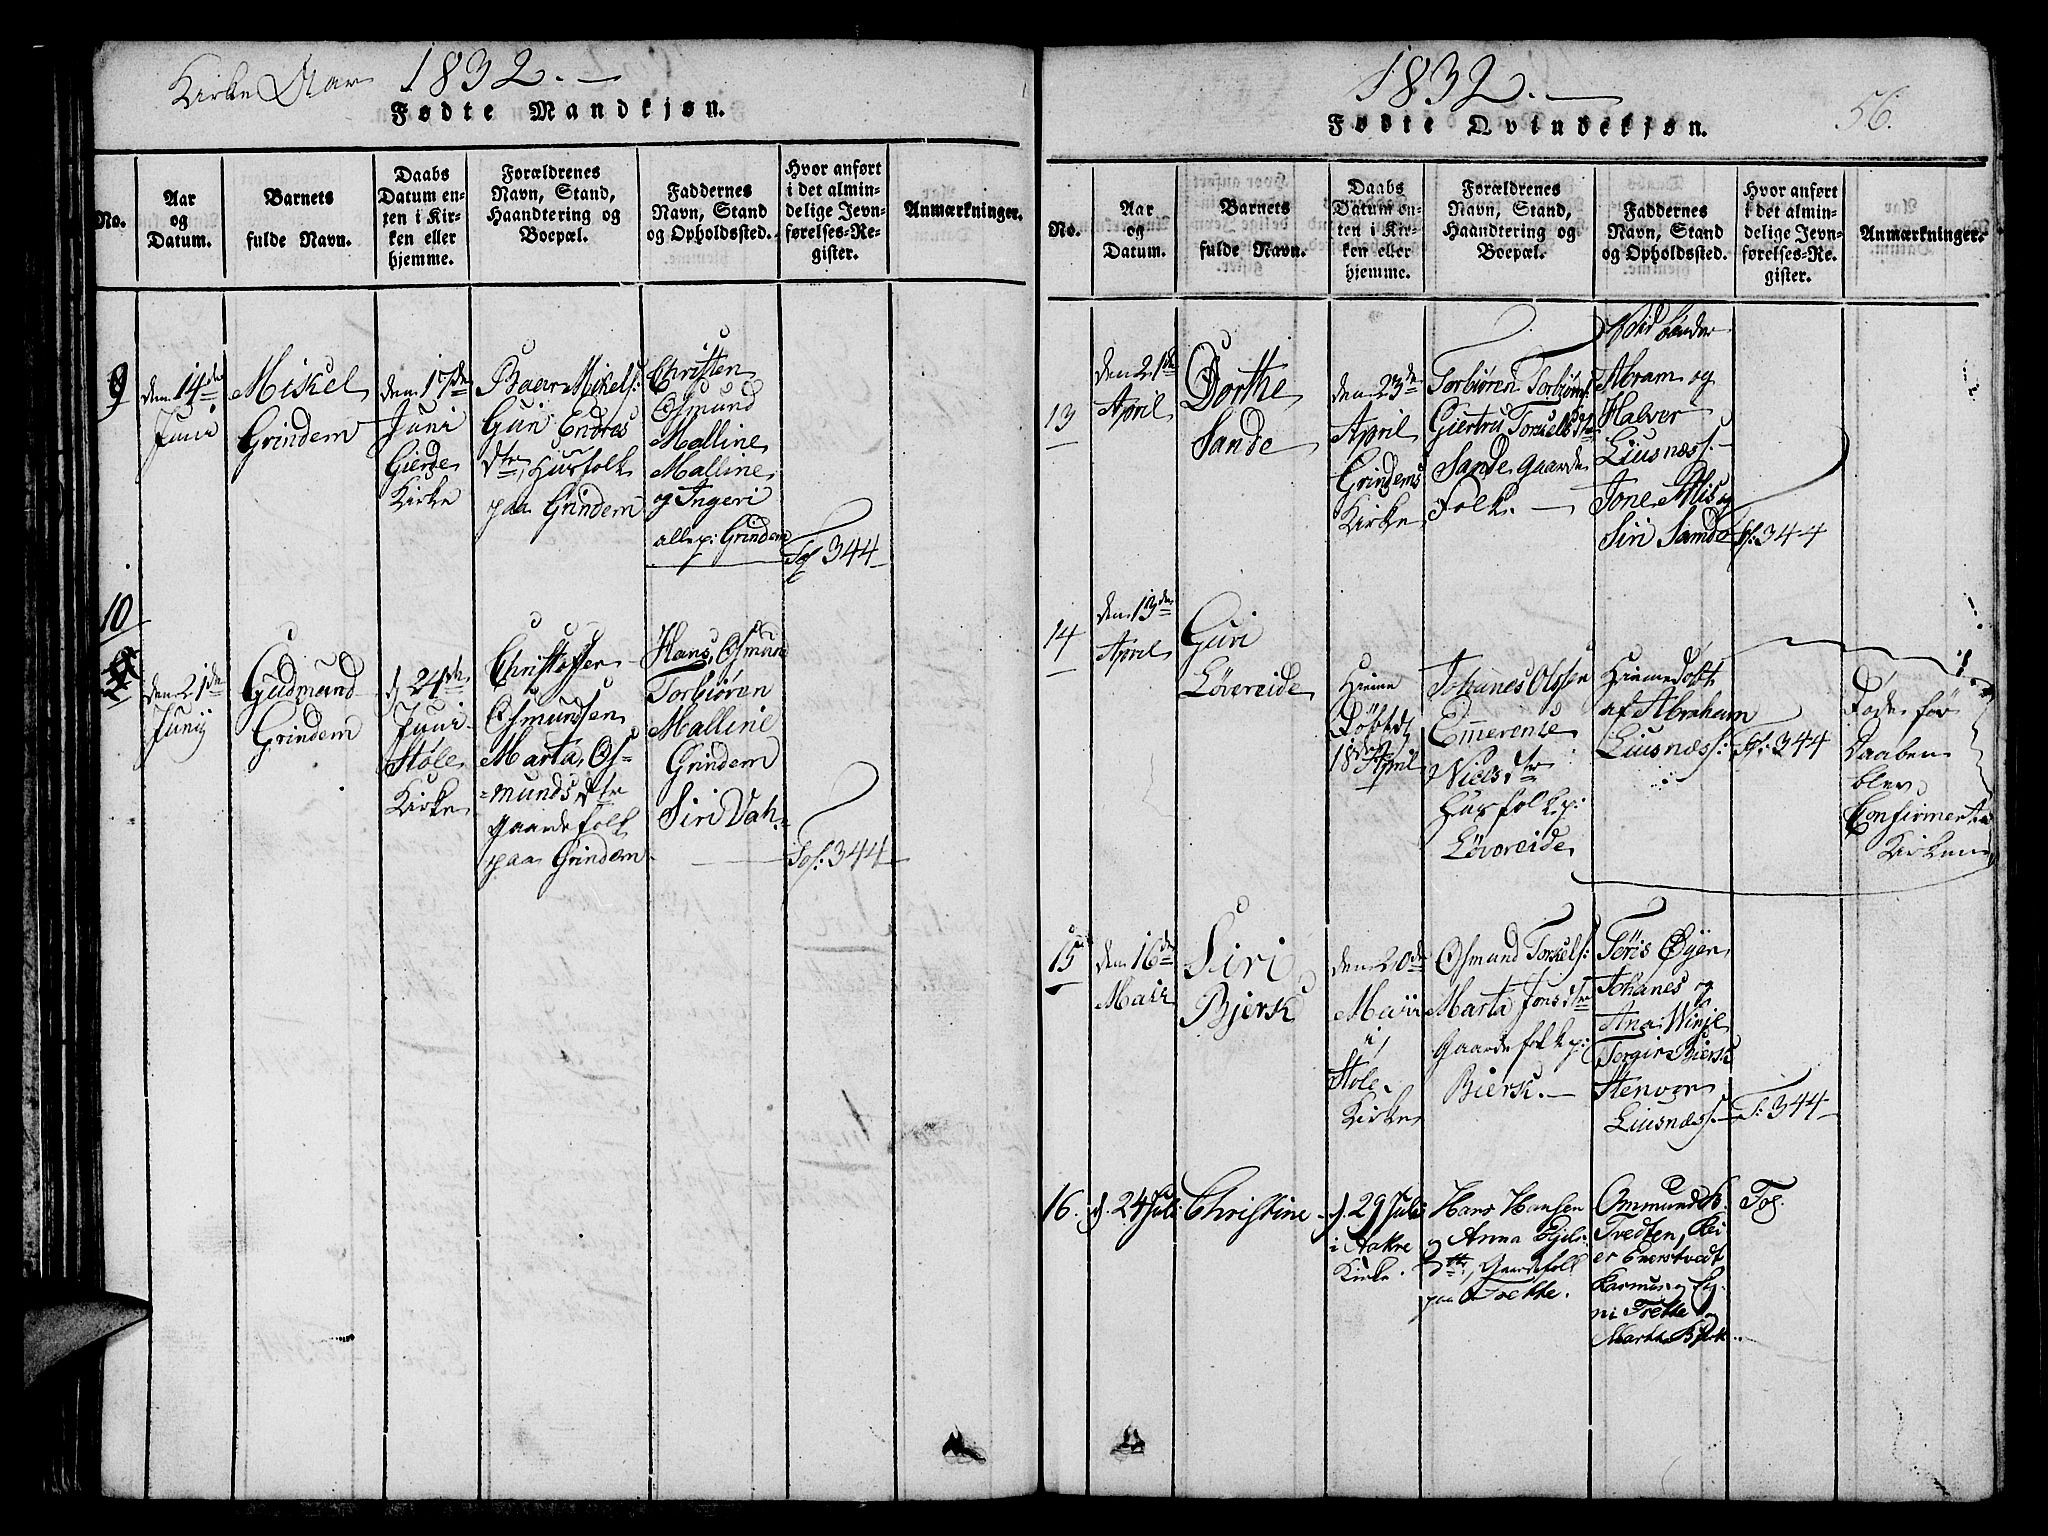 Kirke Aar 1832. —
Fødte Mandkjøn.
No.
Aar
og
Datum.
Barnets
fulde Navn.
Daabs
Datum en-
ten i Kir-
ken eller
hjemme.
Forældrenes
Navn, Stand,
Haandtering og
Boepæl.
Faddernes
Navn, Stand
og Opholdssted.
Hvor anført
i det almin-
delige Jevn-
førelses-Re-
gister.
Anmærkninger.
9
den 14de
Juni
Mikel
Grindem
den 17de
Juni
Gierde
Kirke
Baar Mikels:
Guri Endres
dtr, Husfolk
paa Grindem
Christen
Osmund
Malline
Malline
og Ingeri
alle p: Grindem
Tof 344
10
den 21de
Junij
Gudmund
Grindem
d 24de
Juni
Støle
Kirke
Christoffer
Osmundsen
Marta Os-
munds dtr
gaardefolk
paa Grindem
Hans, Osmund
Torbiøren
Malline
Grindem
Siri Vah
Tof: 344
1832. —
56.
Fødte Qvindekjøn.
No.
Aar
og
Datum.
Barnets
fulde Navn.
Daabs
Datum en-
ten i Kir-
ken eller
hjemme.
Forældrenes
Navn, Stand,
Haandtering og
Boepæl.
Faddernes
Navn, Stand
og Opholdssted.
Hvor anført
i det almin-
delige Jevn-
førelses-Re-
gister.
Anmærkninger.
13
den 21de
April
Dorthe
Sande
den 23de
April
Grindems
Kirke
Torbiøren Torbiøns:
Giertru Torkels dtr
Sande gaarde
Folk. —
Abram og
Halver
Liusnæss. —
Tone Alis og
Siri Sande
Tf: 344
14
den 13de
April
Guri
Løvereide
Hieme
Døbt d
18de April
Johanes Olssen
Emerense
Niels dtr
Husfolk p:
Løvereide
Hiemedøbt
af Abraham
Liusnæss:
Tof: 344
Døde før
Daaben
blev
Confirmert i
Kirken
15
den 16de
Maii
Siri
Bjerk
den 20de
Maii
i
Støle
Kirke
Osmund Torkels:
Marta Jons dtr
Gaardefolk p:
Bierk. —
Tøris Øyen
Johanes og
Ana Winje
Torgir Bierk
Stenvor
Liusnæss. —
T: 344
16.
d. 24 Juli
Christine
d. 29 Juli
i Aakre
Kirke.
Hans Hansen
og Anna
dtr, Gaardefolk
paa Tvette.
Ommund
Tvedten,
er
Rasmus og
ni Tvette og
Martha Bjerk.
Tof.